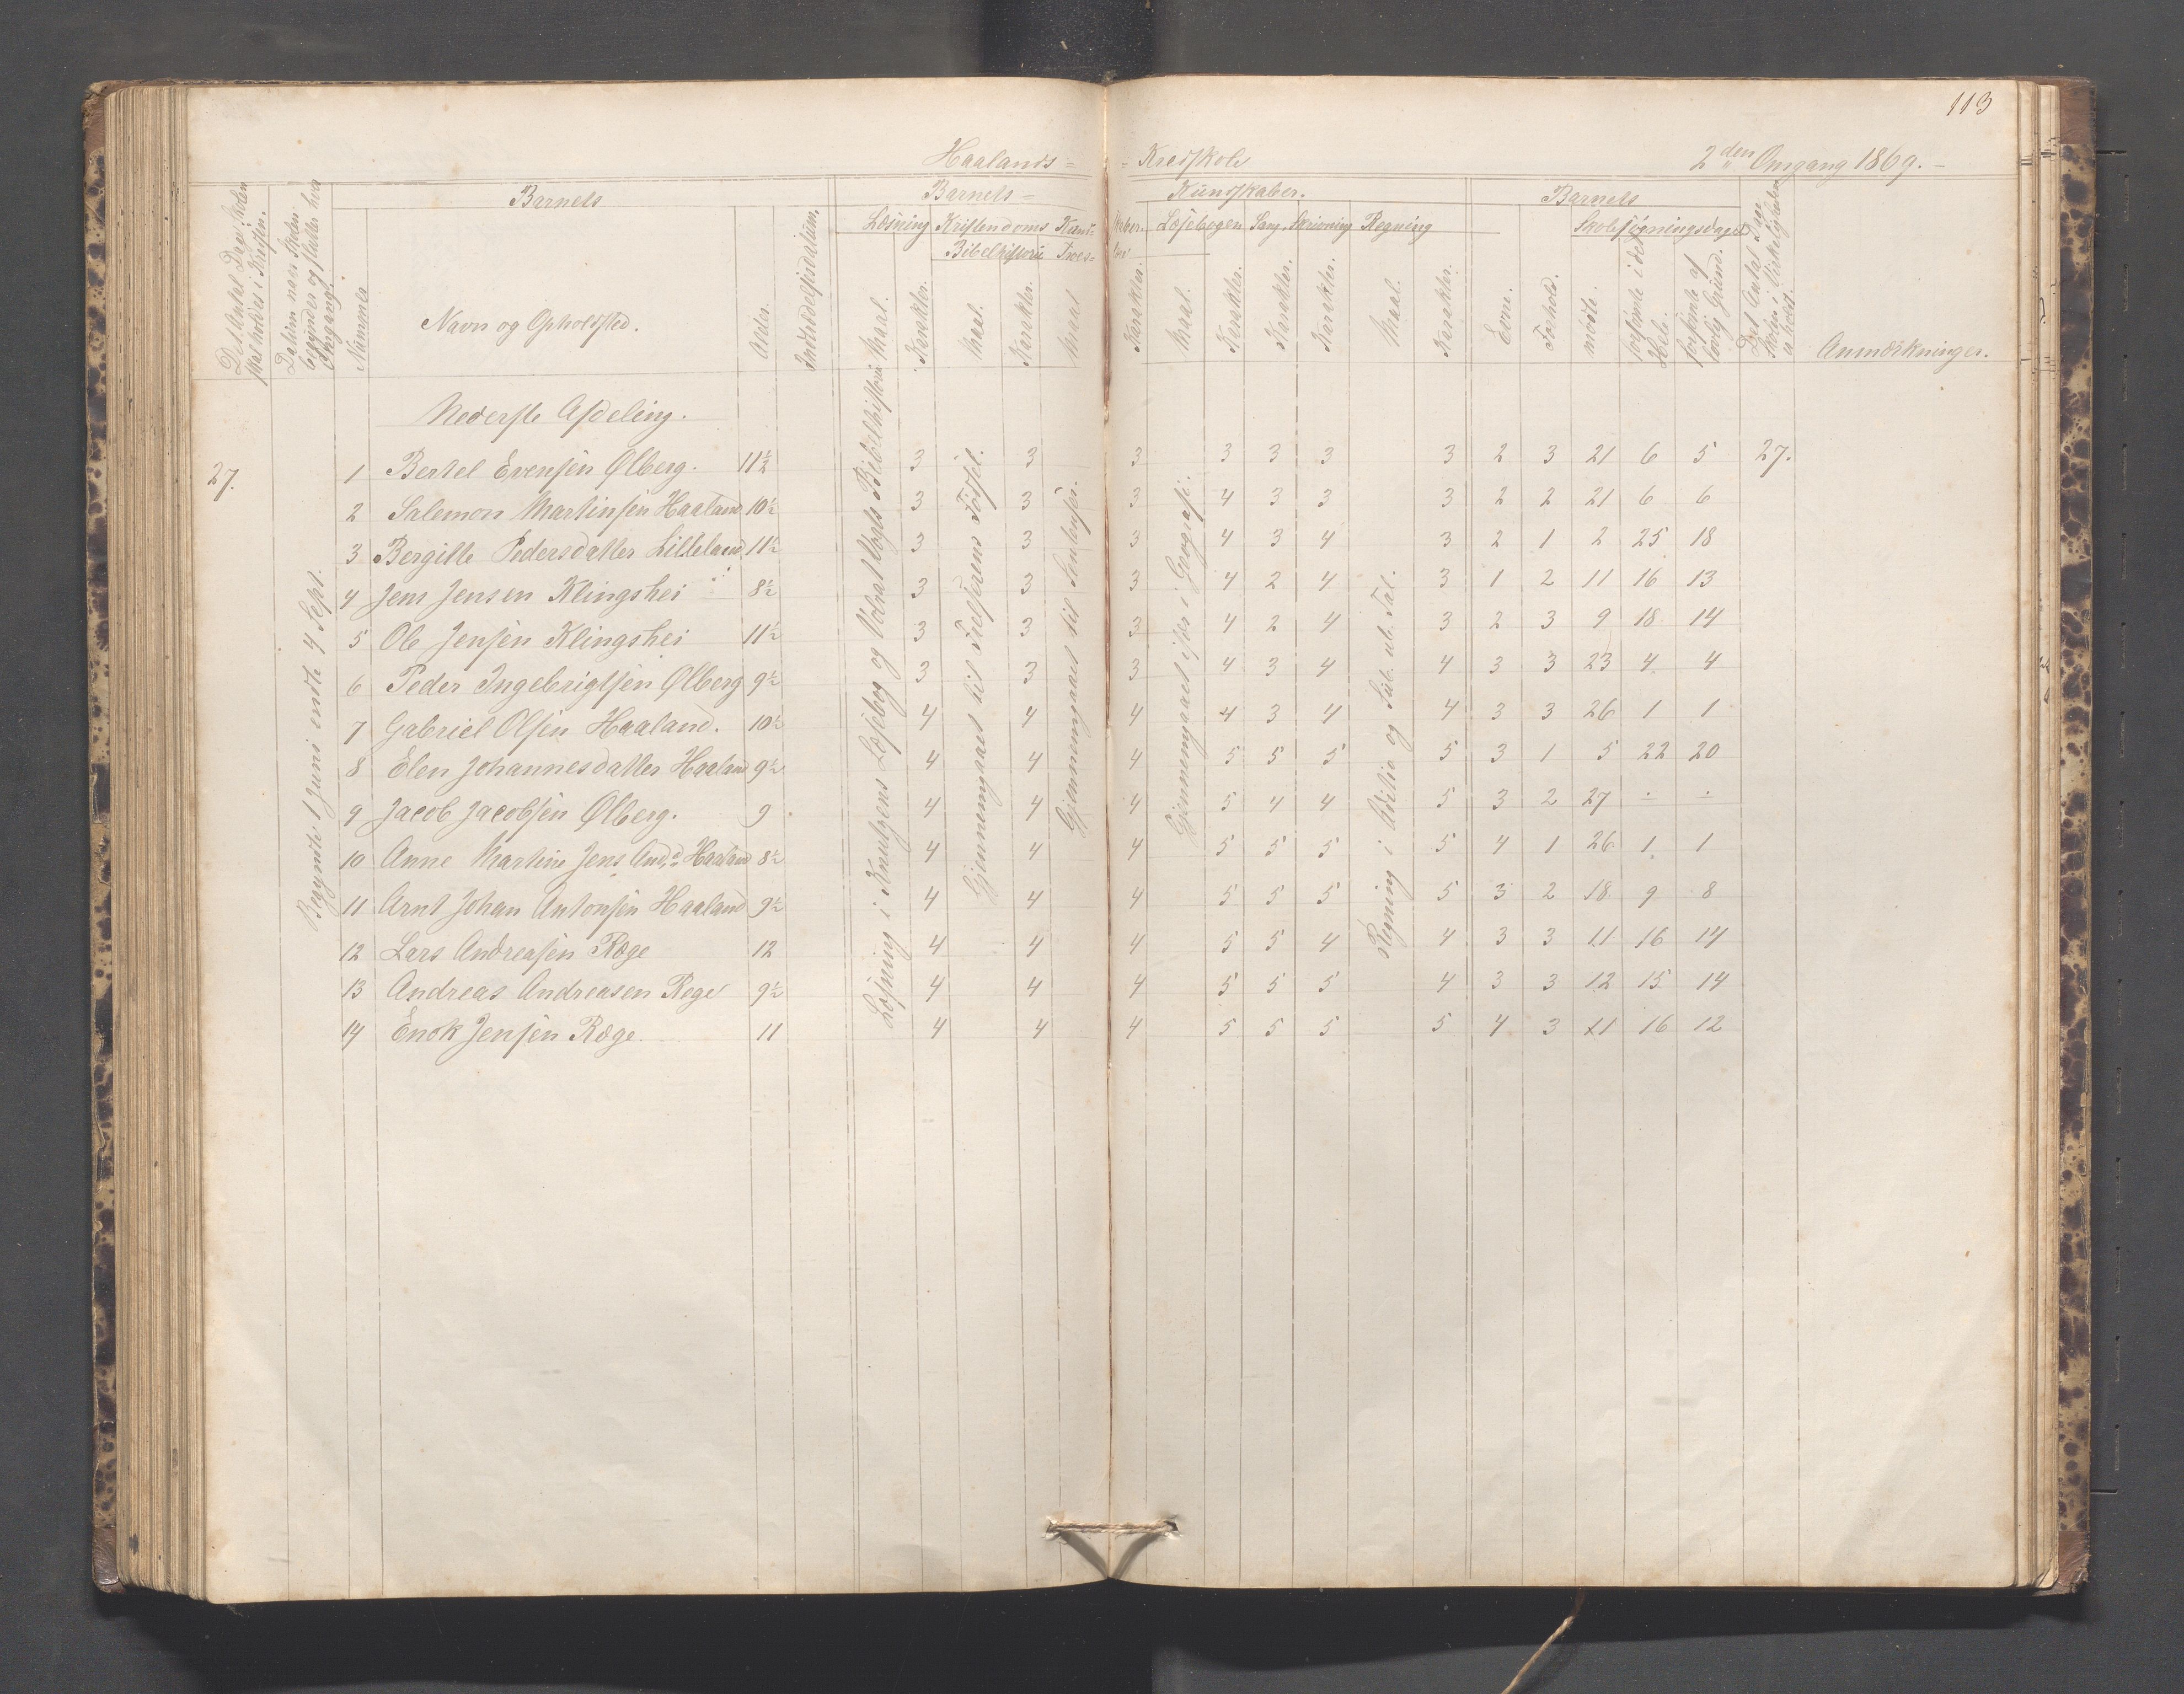 113
Haalands = - Kredsskole 2den Omgang 1869. -
Det Antal Dage Skolen skal holdes i Kredsen.
Datum naar Skolen begynder og slutter hver Omgang.
Barnets
Nummer
Navn og Opholdsted.
Alder.
Indtrædelsesdatum.
Barnets = Kundskaber.
Læsning Kristendoms Kund- skaber. Læsebogen Sang. Skrivning Regning
Bibelhistorie Troes- lære
Maal. Karakter. Maal. Karakter. Maal Karakter. Maal. Karakter. Karakter. Karakter. Maal. Karakter.
Barnets
Evne. Forhold.
Skolesøgningsdage
mødte. forsømte i det Hele. forsømte af lovlig Grund.
Det Antal Dage Skolen i Virkeligheden er holdt.
Anmærkninger.
Nederste Afdeling.
27.
Begyndte 1 Juni endte 4 Sept.
Læsning i Knutzens Læsebog og Volrat Vogts Bibelhistorie
Gjennemgaaet til Frelserens Fødsel.
Gjennemgaaet til
Gjennemgaaet i Geografi.
Regning i Adition og Sub. ub. Tal.
1 Bertel Evensen Ølberg. 11½ 3 3 3 3 3 3 3 2 3 21 6 5 27.
2 Salemon Martinsen Haaland 10½ 3 3 3 4 3 3 3 2 2 21 6 6
3 Bergitte Pedersdatter Lilleland 11½ 3 3 3 4 3 4 3 2 1 2 25 18
4 Jens Jensen Klingshei 8½ 3 3 3 4 2 4 3 1 2 11 16 13
5 Ole Jensen Klingshei 11½ 3 3 3 4 2 4 3 2 3 9 18 14
6 Peder Ingebrigtsen Ølberg 9½ 3 3 3 4 3 4 4 3 3 23 4 4
7 Gabriel Olsen Haaland. 10½ 4 4 4 4 3 4 4 3 3 26 1 1
8 Elen Johannesdatter Haaland 9½ 4 4 4 5 5 5 5 3 1 5 22 20
9 Jacob Jacobsen Ølberg. 9 4 4 4 5 4 4 5 3 2 27 ÷ ÷
10 Anne Martine Jens And.d. Haaland 8½ 4 4 4 5 5 5 5 4 1 26 1 1
11 Arnt Johan Antonsen Haaland 9½ 4 4 4 5 5 5 5 3 2 18 9 8
12 Lars Andreasen Ræge 12 4 4 4 5 5 4 4 3 3 11 16 14
13 Andreas Andreasen Rege 9½ 4 4 4 5 5 5 4 3 3 12 15 14
14 Enok Jensen Ræge. 11 4 4 4 5 5 5 5 4 3 11 16 12